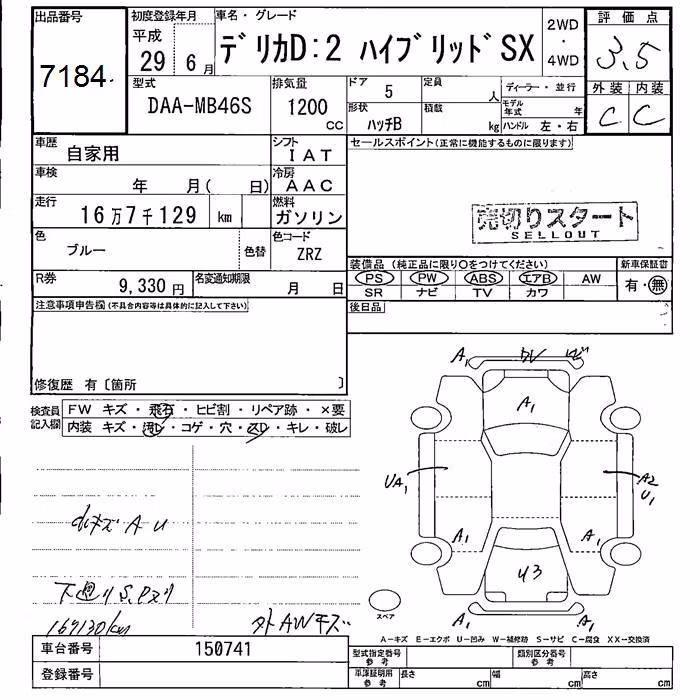 出品番号
7184
初度登録年月
平成
29 6月
車名・グレード
デリカD:2 ハイブリッドSX
2WD
・
4WD
評価点
3.5
型式
DAA-MB46S
排気量
1200
CC
ドア 5
定員 人
形状
ハッチB
積載 kg
ディーラー・並行
モデル年式 年
ハンドル 左・右
外装 内装
C C
車歴
自家用
シフト
IAT
車検 年 月( 日)
冷房
AAC
走行
16万7千129 km
燃料
ガソリン
色
ブルー
色替
色コード
ZRZ
R券
9,330円
名変通知期限
月 日
セールスポイント(正常に機能するものに限ります)
売切りスタート
SELLOUT
装備品(純正品に限り○をつけてください)
PS PW ABS エアB AW
SR ナビ TV カワ
新車保証書
有・無
後日品
注意事項申告欄(不具合内容等は具体的に記入して下さい)
修復歴 有〔箇所 〕
検査員
記入欄
FW キズ・飛石・ヒビ割・リペア跡・×要
内装 キズ・汚レ・コゲ・穴・スレ・キレ・破レ
小キズAU
下廻りS,
167130km
外AWキズ
A1
A1
UA1
A2
U1
A1
A1
U3
A1
A1
スペア
A-キズ E-エクボ U-凹み W-補修跡 S-サビ C-腐食 XX-交換済
車台番号
150741
登録番号
型式指定番号
参考
類別区分番号
参考
車庫証明用
参考
長さ cm
幅 cm
高さ cm